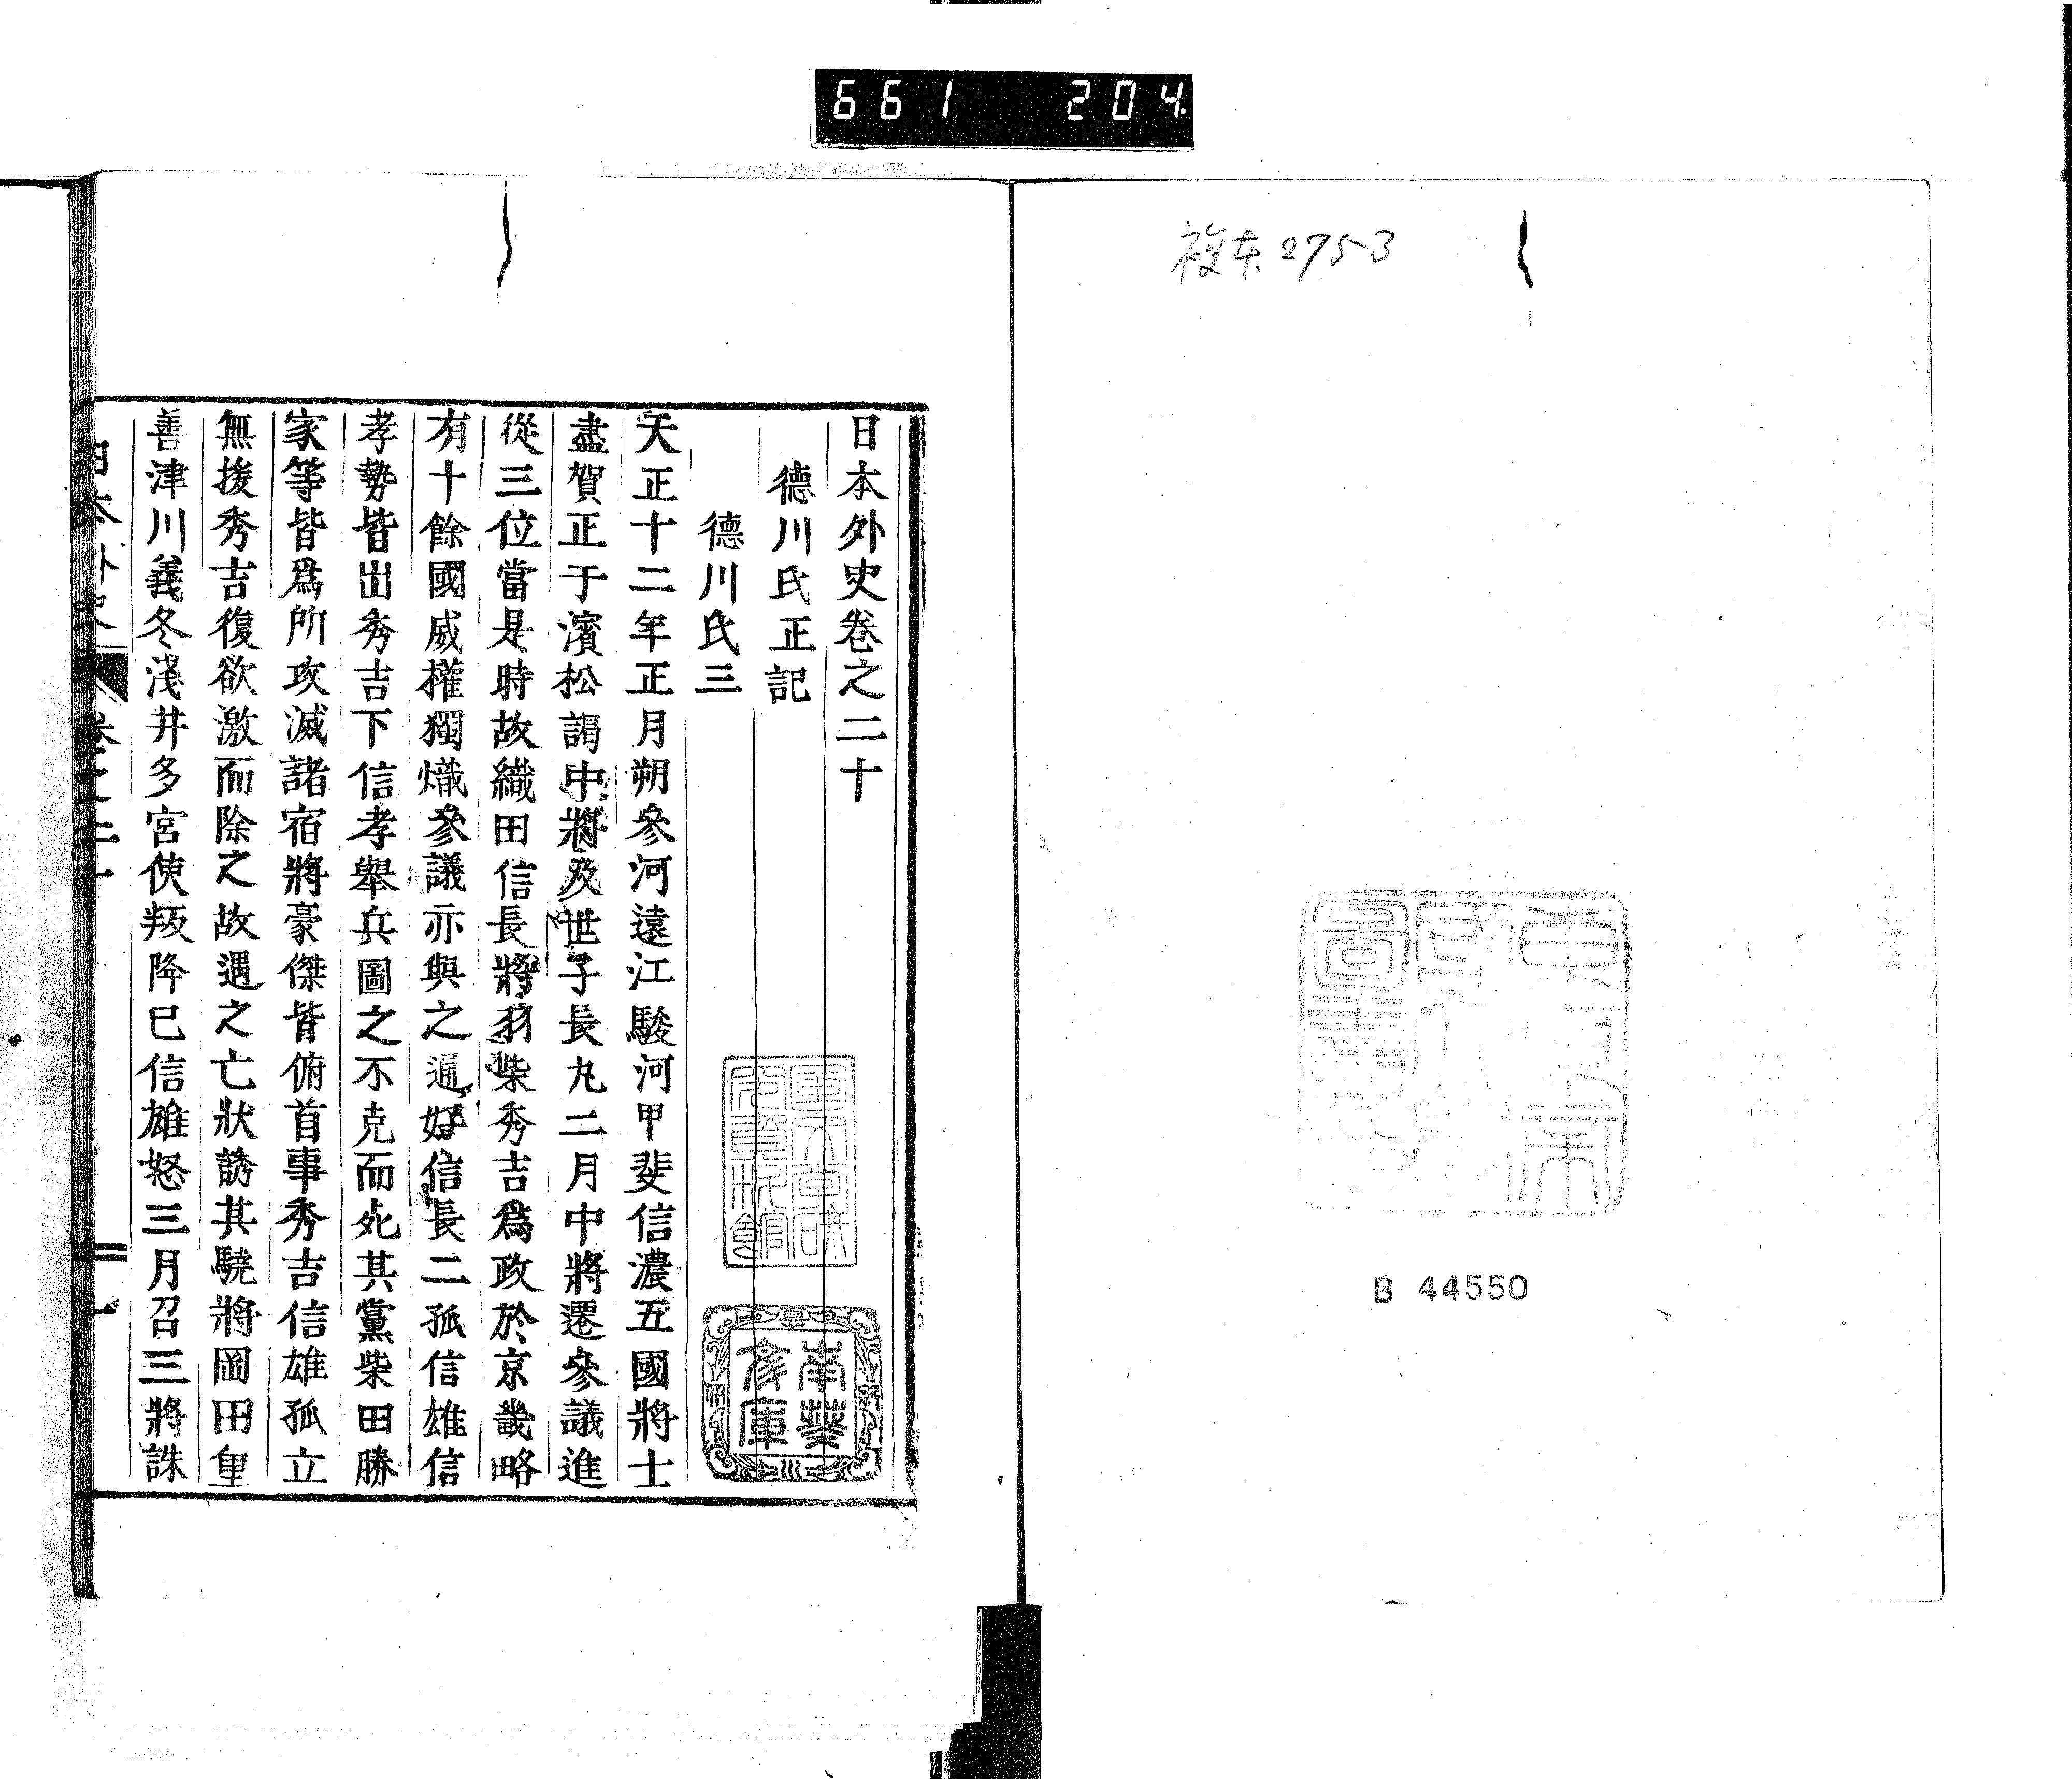 661 204
複本 275-3
B 44550
日本外史卷之二十
德川氏正記
德川氏三
天正十二年正月朔參河遠江駿河甲斐信濃五國將士
盡賀正于濱松謁中將及世子長丸二月中將遷參議進
從三位當是時故織田信長將羽柴秀吉爲政於京畿略
有十餘國威權獨熾參議亦與之通好信長二孤信雄信
孝勢皆出秀吉下信孝舉兵圖之不克而死其黨柴田勝
家等皆爲所攻滅諸宿將豪傑皆俯首事秀吉信雄孤立
無援秀吉復欲激而除之故遇之亡狀誘其驍將岡田重
善津川義冬淺井多宮使叛降已信雄怒三月召三將誅
南葵文庫